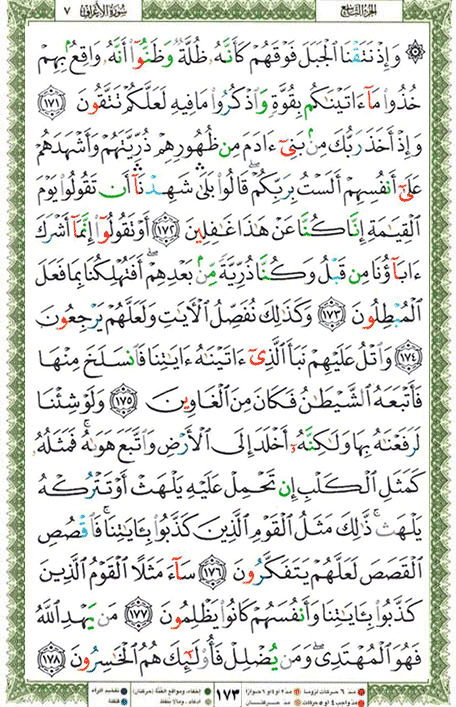 الجزء التاسع
سورة الأعراف ٧
۞ وَإِذْ نَتَقْنَا ٱلْجَبَلَ فَوْقَهُمْ كَأَنَّهُۥ ظُلَّةٌ وَظَنُّوٓا۟ أَنَّهُۥ وَاقِعٌۢ بِهِمْ
خُذُوا۟ مَآ ءَاتَيْنَٰكُم بِقُوَّةٍ وَٱذْكُرُوا۟ مَا فِيهِ لَعَلَّكُمْ تَتَّقُونَ ١٧١
وَإِذْ أَخَذَ رَبُّكَ مِنۢ بَنِىٓ ءَادَمَ مِن ظُهُورِهِمْ ذُرِّيَّتَهُمْ وَأَشْهَدَهُمْ
عَلَىٰٓ أَنفُسِهِمْ أَلَسْتُ بِرَبِّكُمْ ۖ قَالُوا۟ بَلَىٰ ۛ شَهِدْنَآ ۛ أَن تَقُولُوا۟ يَوْمَ
ٱلْقِيَٰمَةِ إِنَّا كُنَّا عَنْ هَٰذَا غَٰفِلِينَ ١٧٢ أَوْ تَقُولُوٓا۟ إِنَّمَآ أَشْرَكَ
ءَابَآؤُنَا مِن قَبْلُ وَكُنَّا ذُرِّيَّةً مِّنۢ بَعْدِهِمْ ۖ أَفَتُهْلِكُنَا بِمَا فَعَلَ
ٱلْمُبْطِلُونَ ١٧٣ وَكَذَٰلِكَ نُفَصِّلُ ٱلْءَايَٰتِ وَلَعَلَّهُمْ يَرْجِعُونَ
١٧٤ وَٱتْلُ عَلَيْهِمْ نَبَأَ ٱلَّذِىٓ ءَاتَيْنَٰهُ ءَايَٰتِنَا فَٱنسَلَخَ مِنْهَا
فَأَتْبَعَهُ ٱلشَّيْطَٰنُ فَكَانَ مِنَ ٱلْغَاوِينَ ١٧٥ وَلَوْ شِئْنَا
لَرَفَعْنَٰهُ بِهَا وَلَٰكِنَّهُۥٓ أَخْلَدَ إِلَى ٱلْأَرْضِ وَٱتَّبَعَ هَوَىٰهُ ۚ فَمَثَلُهُۥ
كَمَثَلِ ٱلْكَلْبِ إِن تَحْمِلْ عَلَيْهِ يَلْهَثْ أَوْ تَتْرُكْهُ
يَلْهَث ۚ ذَّٰلِكَ مَثَلُ ٱلْقَوْمِ ٱلَّذِينَ كَذَّبُوا۟ بِـَٔايَٰتِنَا ۚ فَٱقْصُصِ
ٱلْقَصَصَ لَعَلَّهُمْ يَتَفَكَّرُونَ ١٧٦ سَآءَ مَثَلًا ٱلْقَوْمُ ٱلَّذِينَ
كَذَّبُوا۟ بِـَٔايَٰتِنَا وَأَنفُسَهُمْ كَانُوا۟ يَظْلِمُونَ ١٧٧ مَن يَهْدِ ٱللَّهُ
فَهُوَ ٱلْمُهْتَدِى ۖ وَمَن يُضْلِلْ فَأُو۟لَٰٓئِكَ هُمُ ٱلْخَٰسِرُونَ ١٧٨
مد ٦ حركات لزوماً مد ٢ او ٤ او ٦ جوازاً
مد واجب ٤ او ٥ حركات مد حركتان
١٧٣
إخفاء، ومواقع الغنة (حركتان) تفخيم الراء
إدغام، وما لا يلفظ قلقلة